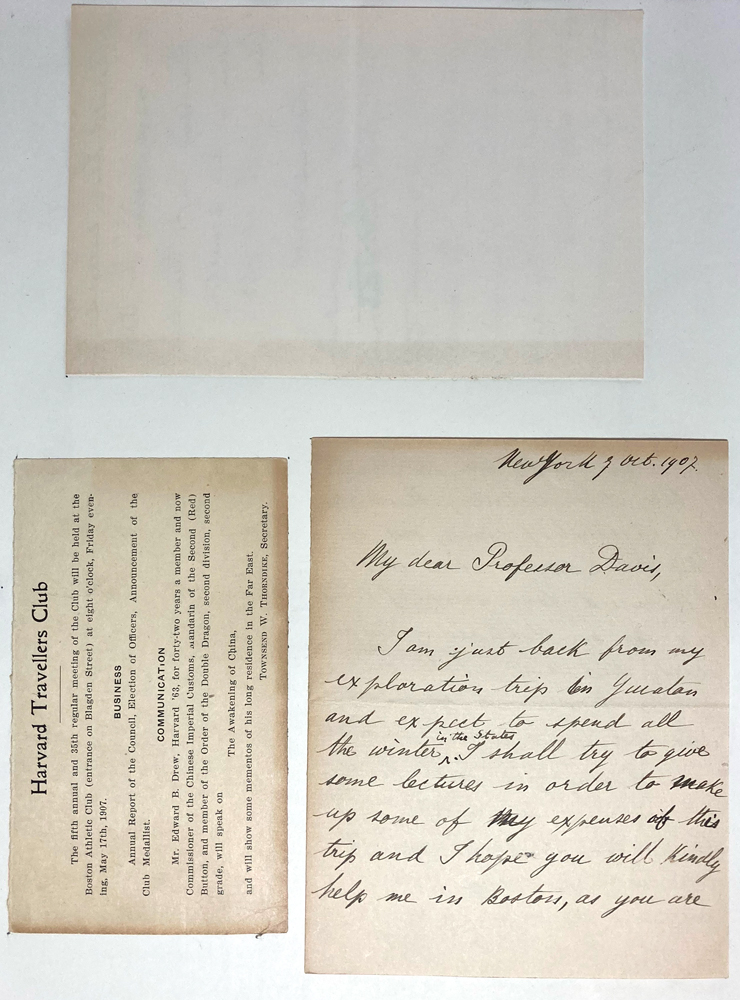 Harvard Travellers Club
The fifth annual and 35th regular meeting of the Club will be held at the
Boston Athletic Club (entrance on Blagden Street) at eight o'clock, Friday even-
ing, May 17th, 1907.
BUSINESS
Annual Report of the Council, Election of Officers, Announcement of the
Club Medallist.
COMMUNICATION
Mr. Edward B. Drew, Harvard '63, for forty-two years a member and now
Commissioner of the Chinese Imperial Customs, Mandarin of the Second (Red)
Button, and member of the Order of the Double Dragon, second division, second
grade, will speak on
The Awakening of China,
and will show some mementos of his long residence in the Far East.
TOWNSEND W. THORNDIKE, Secretary.
New York 9 Oct. 1907.
My dear Professor Davis,
I am just back from my
exploration trip in Yucatan
and expect to spend all
in the States
the winter. I shall try to give
some lectures in order to make
up some of my expenses of this
trip and I hope you will kindly
help me in Boston, as you are